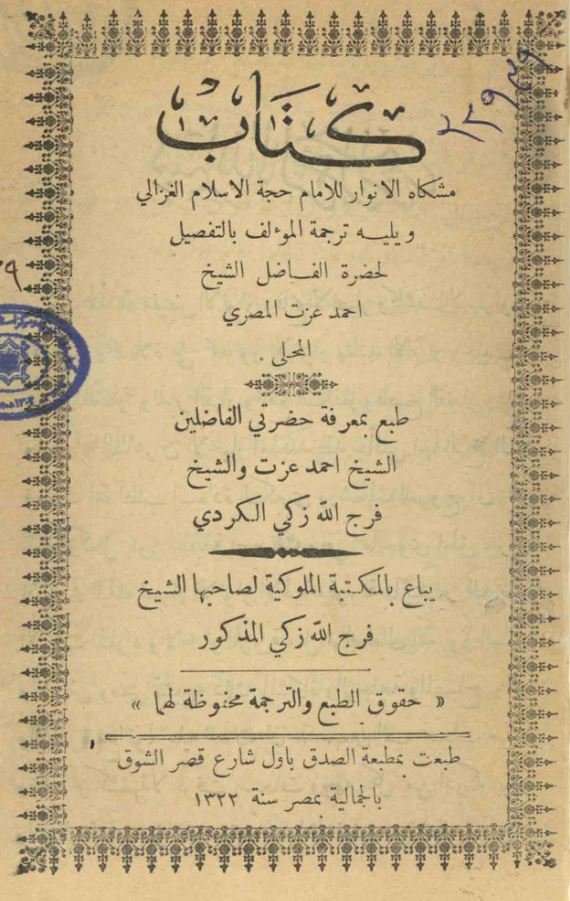 كتاب
مشكاه الانوار للامام حجة الاسلام الغزالي
ويليه ترجمة المؤلف بالتفصيل
لحضرة الفاضل الشيخ
احمد عزت المصري
المحلى
طبع بمعرفة حضرتي الفاضلين
الشيخ احمد عزت والشيخ
فرج الله زكي الكردي
يباع بالمكتبة الملوكية لصاحبها الشيخ
فرج الله زكي المذكور
« حقوق الطبع والترجمة محفوظة لهما »
طبعت بمطبعة الصدق باول شارع قصر الشوق
بالجمالية بمصر سنة ١٣٢٢